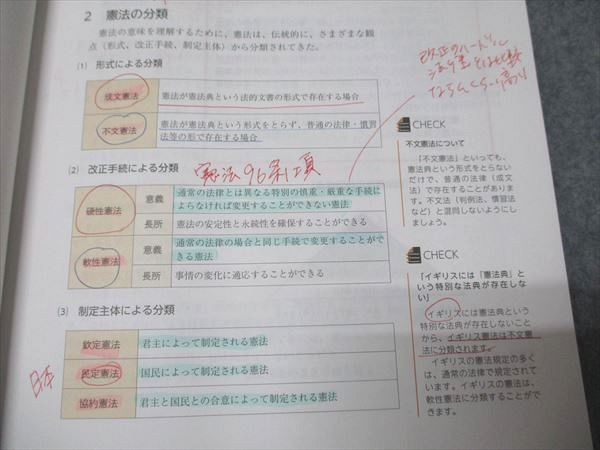 2 憲法の分類
憲法の意味を理解するために、憲法は、伝統的に、さまざまな観
点（形式、改正手続、制定主体）から分類されてきた。
(1) 形式による分類
成文憲法
憲法が憲法典という法的文書の形式で存在する場合
不文憲法
憲法が憲法典という形式をとらず、普通の法律・慣習
法等の形で存在する場合
(2) 改正手続による分類
憲法96条1項
硬性憲法
意義
通常の法律とは異なる特別の慎重・厳重な手続に
よらなければ変更することができない憲法
長所
憲法の安定性と永続性を確保することができる
軟性憲法
意義
通常の法律の場合と同じ手続で変更することがで
きる憲法
長所
事情の変化に適応することができる
(3) 制定主体による分類
欽定憲法
君主によって制定される憲法
日本
民定憲法
国民によって制定される憲法
協約憲法
君主と国民との合意によって制定される憲法
改正のハードル
法律とは比較
ならんくらい高い
CHECK
不文憲法について
「不文憲法」といっても、
憲法典という形式をとらない
だけで、普通の法律（成文
法）で存在することがありま
す。不文法（判例法、慣習法
など）と混同しないようにし
ましょう。
CHECK
「イギリスには「憲法典」と
いう特別な法典が存在しな
い」
イギリスには憲法典という
特別な法典が存在しないこと
から、イギリス憲法は不文憲
法に分類されます。
イギリスの憲法規定の多く
は、通常の法律で規定されて
います。イギリスの憲法は、
軟性憲法に分類することがで
きます。